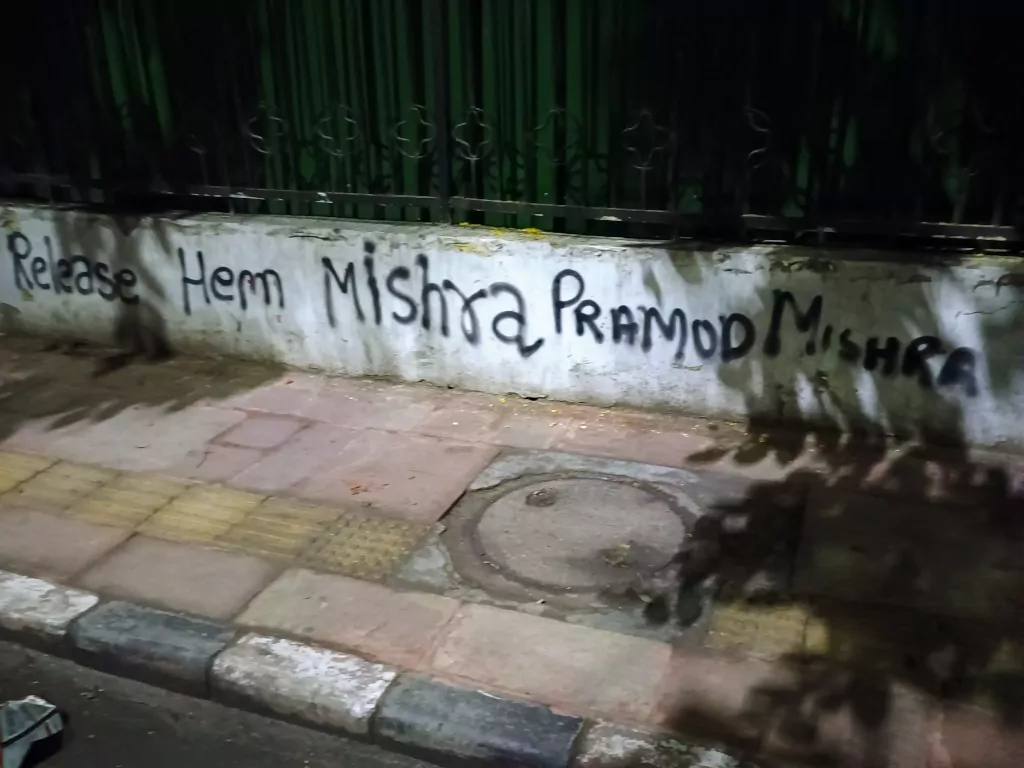 Release Hem Mishra PRAMOD MISHRA